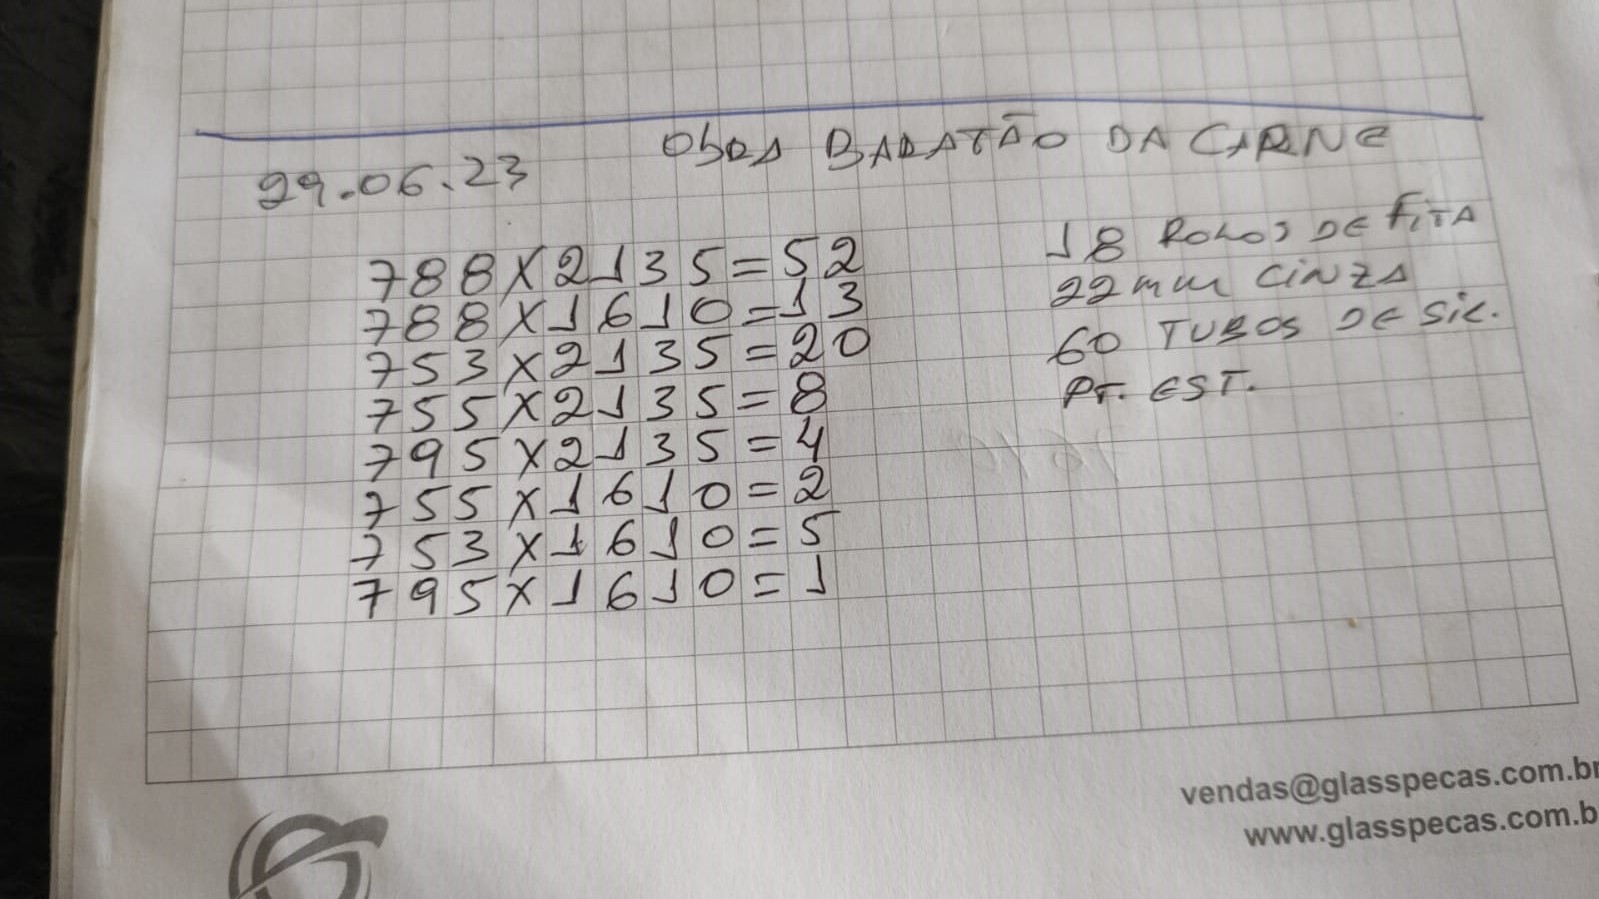 OBRA BARATÃO DA CARNE
29.06.23
788X2135=52
788X1610=13
753X2135=20
755X2135=8
795X2135=4
755X1610=2
753X1610=5
795X1610=1
18 ROLOS DE FiTA
22mm CiNZA
60 TUBOS DE SiL.
PT. EST.
vendas@glasspecas.com.br
www.glasspecas.com.b